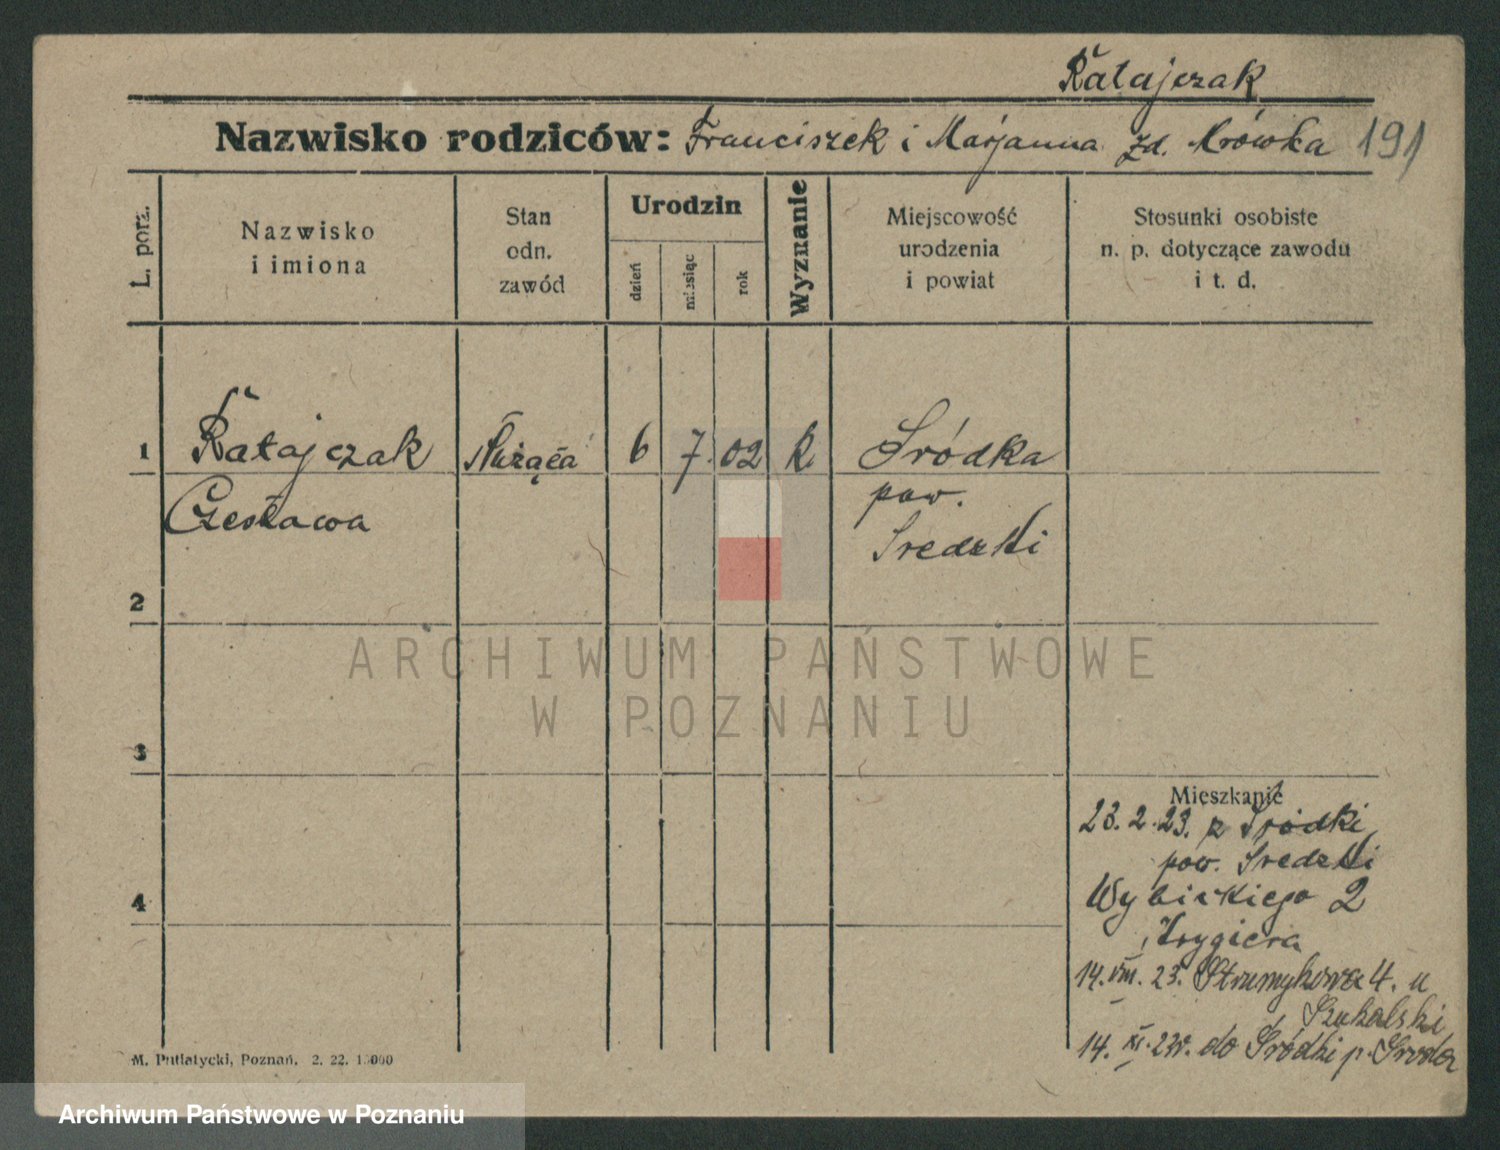 Ratajczak
Nazwisko rodziców: Franciszek i Marjanna zd. Mrówka 191
L. porz.
Nazwisko
i imiona
Stan
odn.
zawód
Urodzin
dzień
miesiąc
rok
Wyznanie
Miejscowość
urodzenia
i powiat
Stosunki osobiste
n. p. dotyczące zawodu
i t. d.
1 Ratajczak służąca 6 7. 02 k. Śródka
Czesława pow.
Średzki
2
3
4
Mieszkanie
23. 2. 23. z Śródki
pow. Średzki
Wybickiego 2
14. VIII. 23. Strumykowa 4. u
Szukalski
14. XI. 23r. do Śródki p. Środa
M. Putiatycki, Poznań. 2. 22. 15000
ARCHIWUM PAŃSTWOWE
W POZNANIU
Archiwum Państwowe w Poznaniu